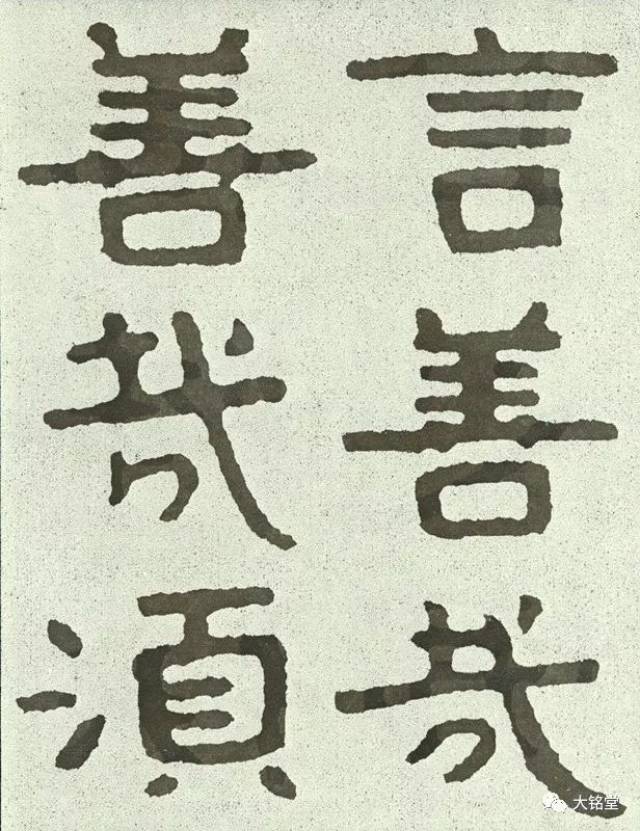 言善哉
善哉湏
大铭堂